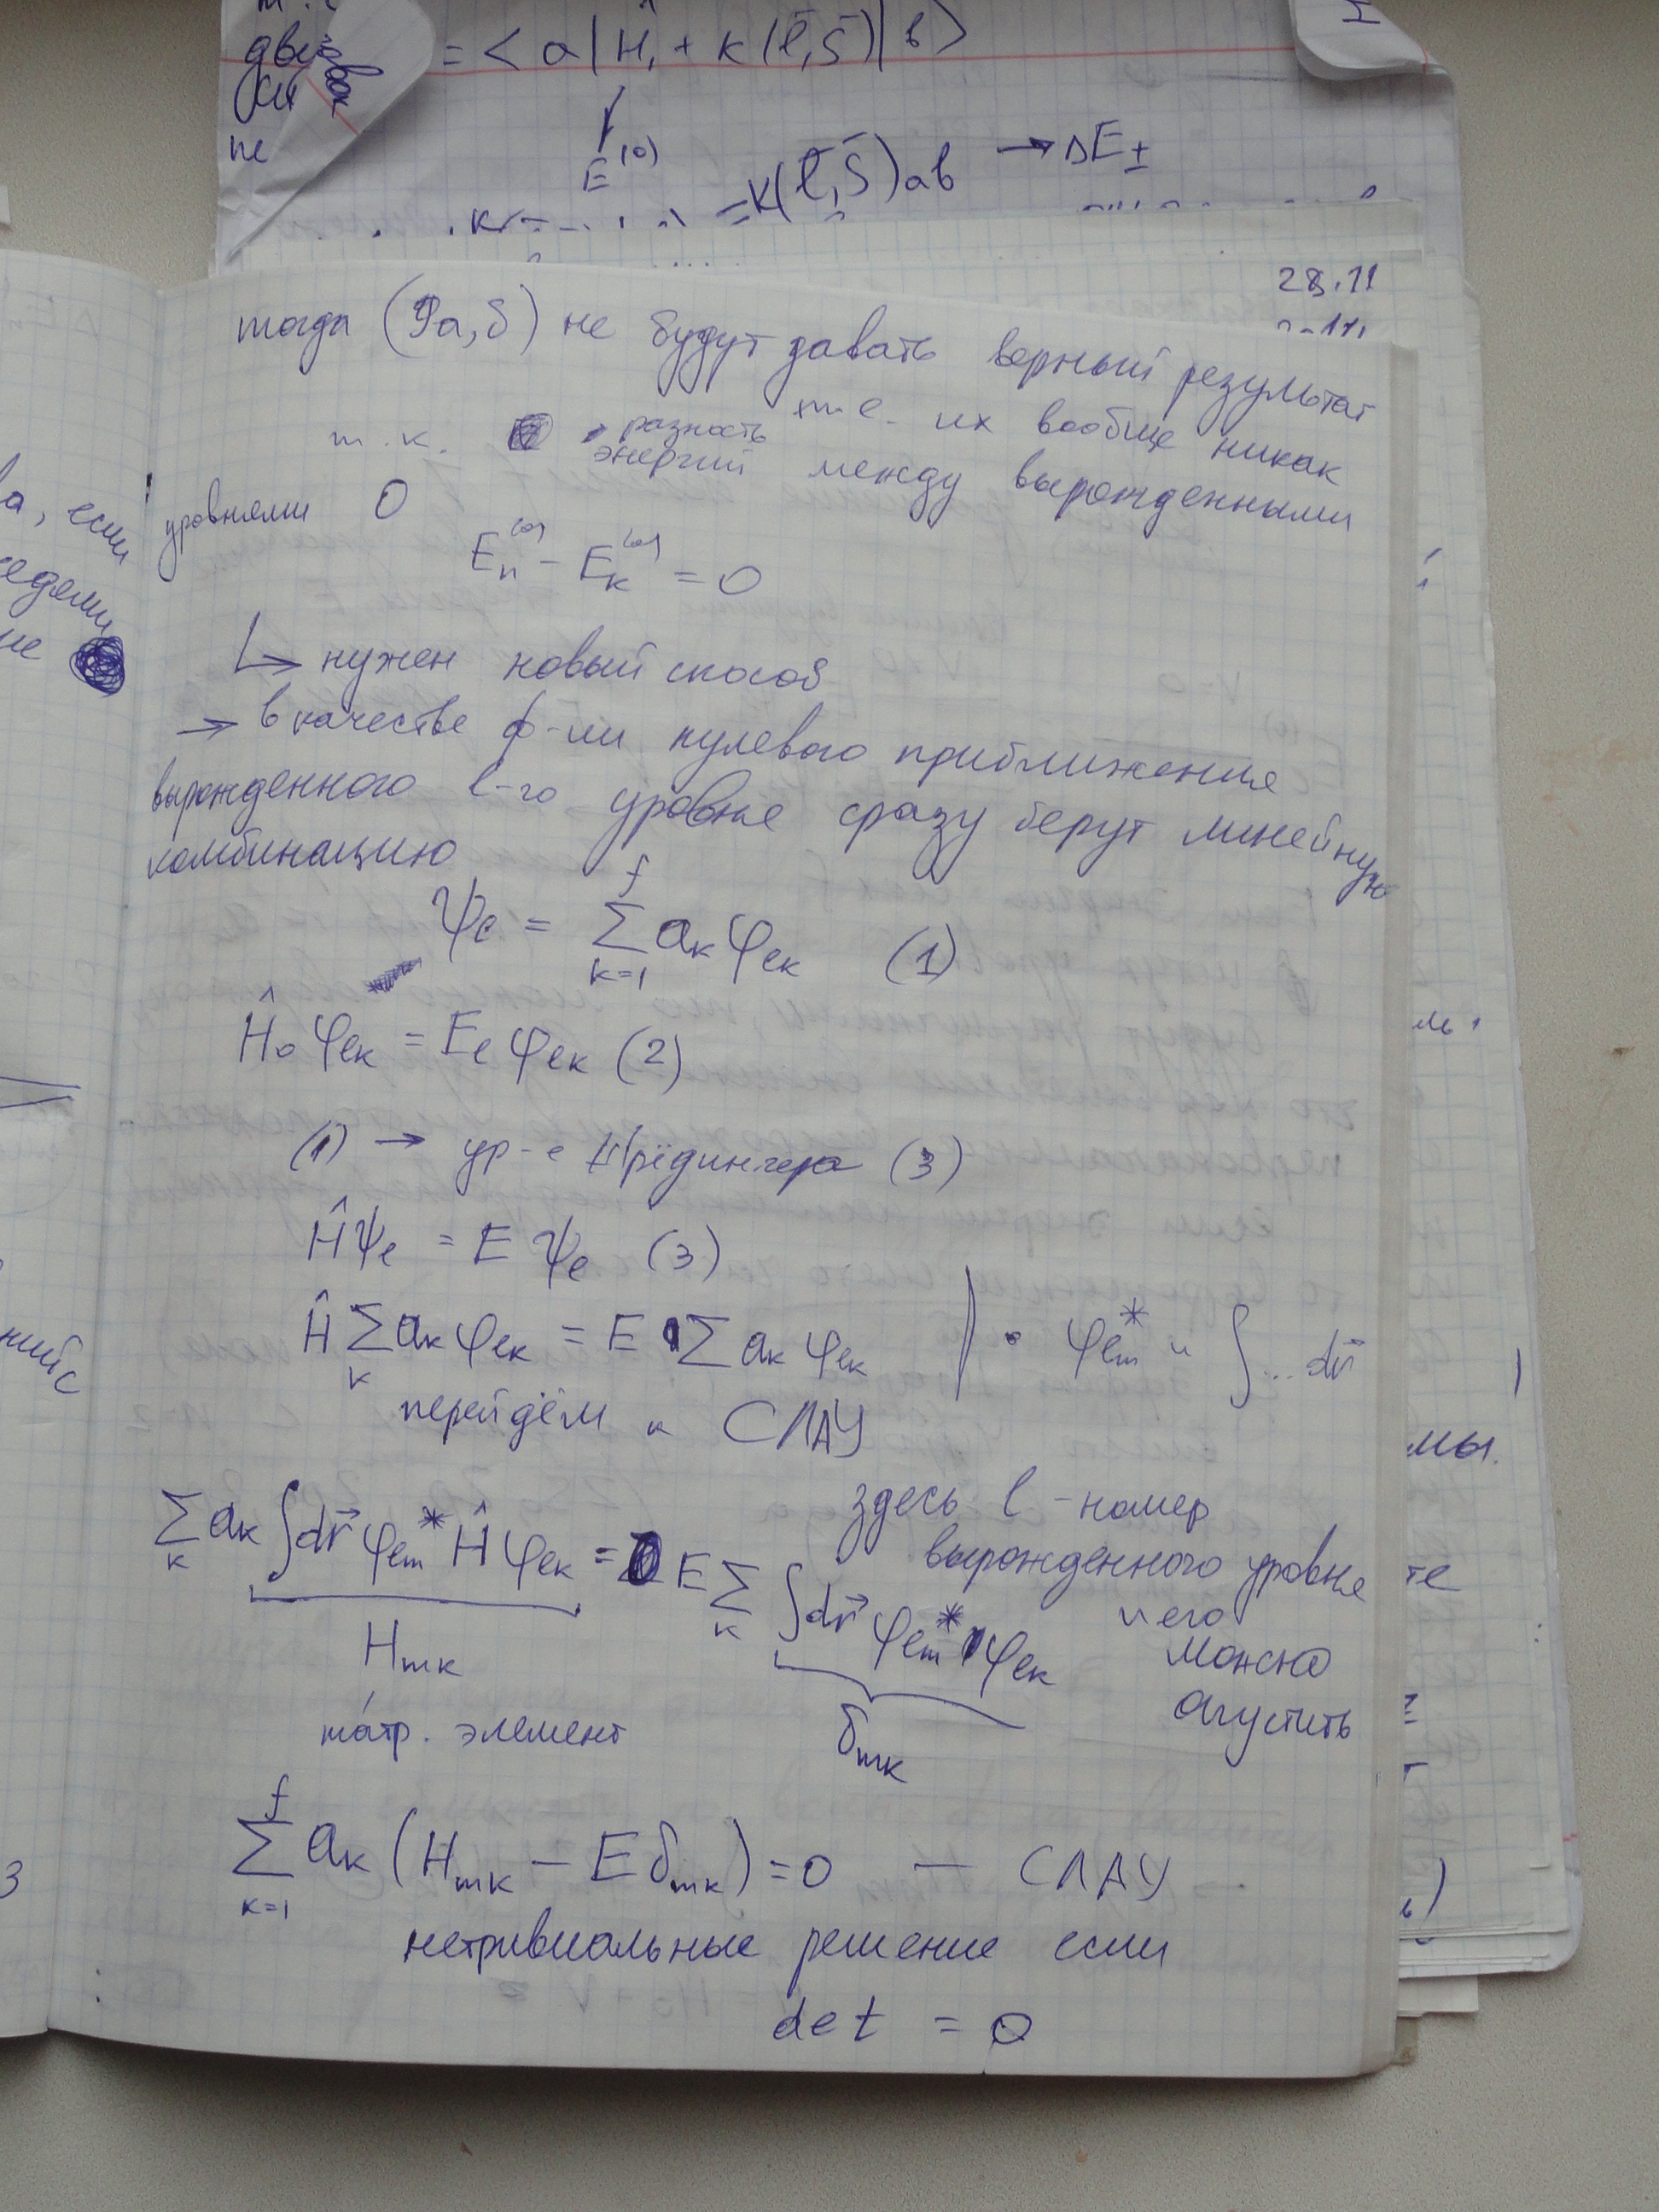 = < a | Ĥ₁ + K(l̄,s̄) | b >
E⁽⁰⁾
не
= K(l̄,s̄)ab → ΔE±
28.11
тогда (9а,б) не будут давать верный результат
т.е. их вообще никак
т.к. разность энергий между вырожденными
уровнями 0
Eₙ⁽⁰⁾ - Eₖ⁽⁰⁾ = 0
↳ нужен новый способ
→ в качестве ф-ии нулевого приближения
вырожденного l-го уровня сразу берут линейную
комбинацию
ψₗ = Σₖ₌₁ᶠ aₖ φₗₖ (1)
Ĥ₀ φₗₖ = Eₗ φₗₖ (2)
(1) → ур-е Шрёдингера (3)
Ĥψₗ = E ψₗ (3)
Ĥ Σₖ aₖ φₗₖ = E Σ aₖ φₗₖ | · φₗₘ* и ∫... dr⃗
перейдём к СЛАУ
Σₖ aₖ ∫dr⃗ φₗₘ* Ĥ φₗₖ = E Σₖ ∫dr⃗ φₗₘ* φₗₖ
Hₘₖ
матр. элемент
δₘₖ
здесь l - номер
вырожденного уровня
и его
можно
опустить
Σₖ₌₁ᶠ aₖ (Hₘₖ - E δₘₖ) = 0 — СЛАУ
нетривиальные решение если
det = 0
а, если
мы.
те
3